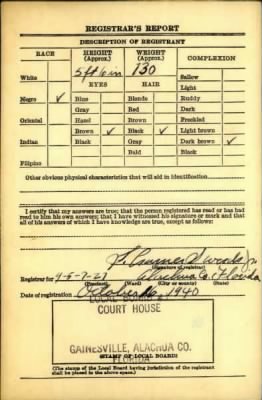 REGISTRAR'S REPORT
DESCRIPTION OF REGISTRANT
RACE HEIGHT (Approx.) WEIGHT (Approx.) COMPLEXION
5 ft 6 in 130
White Sallow
EYES HAIR Light
Negro ✓ Blue Blonde Ruddy
Gray Red Dark
Oriental Hazel Brown Freckled
Brown ✓ Black ✓ Light brown
Indian Black Gray Dark brown ✓
Bald Black
Filipino
Other obvious physical characteristics that will aid in identification
I certify that my answers are true; that the person registered has read or has had
read to him his own answers; that I have witnessed his signature or mark and that
all of his answers of which I have knowledge are true, except as follows:
(Signature of registrar)
Registrar for Alachua Co. Florida
(Precinct) (Ward) (City or county) (State)
Date of registration 1940
COURT HOUSE
GAINESVILLE, ALACHUA CO.
FLORIDA
(STAMP OF LOCAL BOARD)
(The stamp of the Local Board having jurisdiction of the registrant
shall be placed in the above space.)